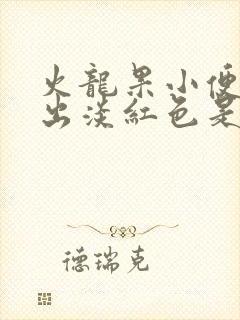 火龍果小便
出淡紅色是
德瑞克